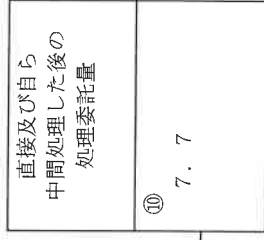 直接及び自ら
中間処理した後の
処理委託量
⑩
7.7